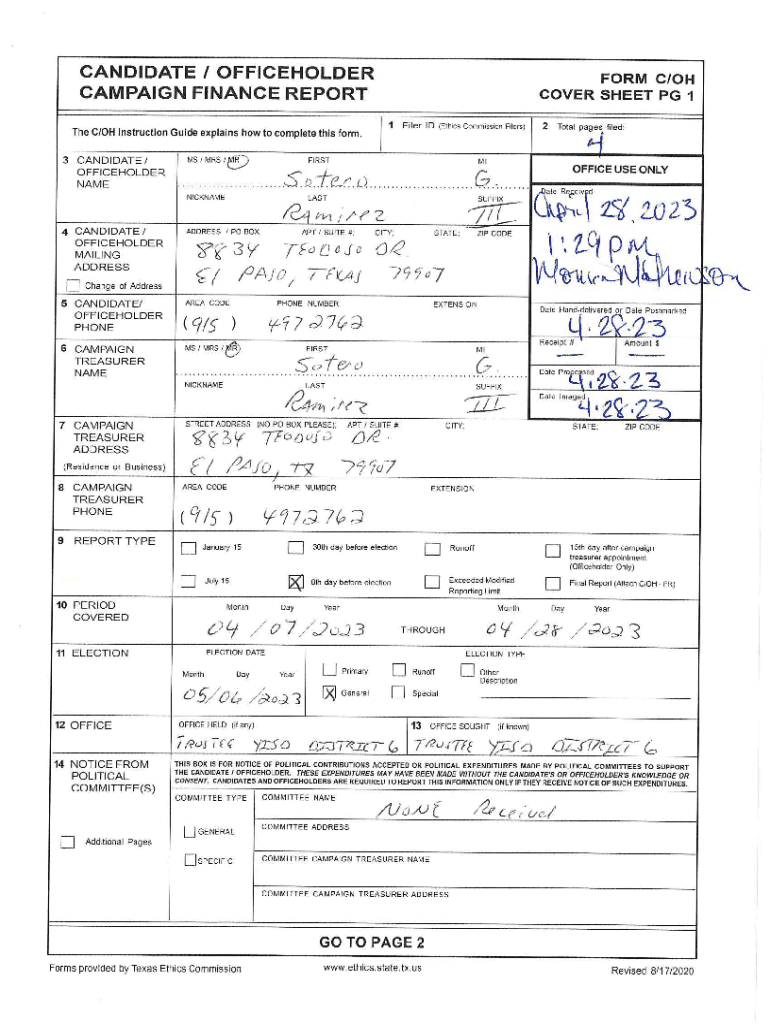 CANDIDATE / OFFICEHOLDER
CAMPAIGN FINANCE REPORT
FORM C/OH
COVER SHEET PG 1
The C/OH Instruction Guide explains how to complete this form.
1 Filer ID (Ethics Commission Filers)
2 Total pages filed:
4
3 CANDIDATE / OFFICEHOLDER NAME
MS / MRS / MR FIRST MI
Sotero G.
NICKNAME LAST SUFFIX
Ramirez III
OFFICE USE ONLY
Date Received
April 28, 2023
1:29 PM
4 CANDIDATE / OFFICEHOLDER MAILING ADDRESS
Change of Address
ADDRESS / PO BOX; APT / SUITE #; CITY; STATE; ZIP CODE
8834 TEODOSO DR.
El PASO, TEXAS 79907
5 CANDIDATE/ OFFICEHOLDER PHONE
AREA CODE PHONE NUMBER EXTENSION
(915) 4972762
Date Hand-delivered or Date Postmarked
4.28.23
Receipt # Amount $
— —
Date Processed
4.28.23
Date Imaged
4.28.23
6 CAMPAIGN TREASURER NAME
MS / MRS / MR FIRST MI
Sotero G.
NICKNAME LAST SUFFIX
Ramirez III
7 CAMPAIGN TREASURER ADDRESS
(Residence or Business)
STREET ADDRESS (NO PO BOX PLEASE); APT / SUITE #; CITY; STATE; ZIP CODE
8834 TEODOSO DR.
El PASO, TX 79907
8 CAMPAIGN TREASURER PHONE
AREA CODE PHONE NUMBER EXTENSION
(915) 4972762
9 REPORT TYPE
January 15
30th day before election
Runoff
15th day after campaign treasurer appointment (Officeholder Only)
July 15
X 8th day before election
Exceeded Modified Reporting Limit
Final Report (Attach C/OH - FR)
10 PERIOD COVERED
Month Day Year
04 / 07 / 2023
THROUGH
Month Day Year
04 / 28 / 2023
11 ELECTION
ELECTION DATE
Month Day Year
05/06/2023
ELECTION TYPE
Primary
Runoff
Other Description
X General
Special
12 OFFICE
OFFICE HELD (if any)
TRUSTEE YISD DISTRICT 6
13 OFFICE SOUGHT (if known)
TRUSTEE YISD DISTRICT 6
14 NOTICE FROM POLITICAL COMMITTEE(S)
Additional Pages
THIS BOX IS FOR NOTICE OF POLITICAL CONTRIBUTIONS ACCEPTED OR POLITICAL EXPENDITURES MADE BY POLITICAL COMMITTEES TO SUPPORT
THE CANDIDATE / OFFICEHOLDER. THESE EXPENDITURES MAY HAVE BEEN MADE WITHOUT THE CANDIDATE'S OR OFFICEHOLDER'S KNOWLEDGE OR
CONSENT. CANDIDATES AND OFFICEHOLDERS ARE REQUIRED TO REPORT THIS INFORMATION ONLY IF THEY RECEIVE NOTICE OF SUCH EXPENDITURES.
COMMITTEE TYPE
GENERAL
SPECIFIC
COMMITTEE NAME
NONE Received
COMMITTEE ADDRESS
COMMITTEE CAMPAIGN TREASURER NAME
COMMITTEE CAMPAIGN TREASURER ADDRESS
GO TO PAGE 2
Forms provided by Texas Ethics Commission
www.ethics.state.tx.us
Revised 8/17/2020